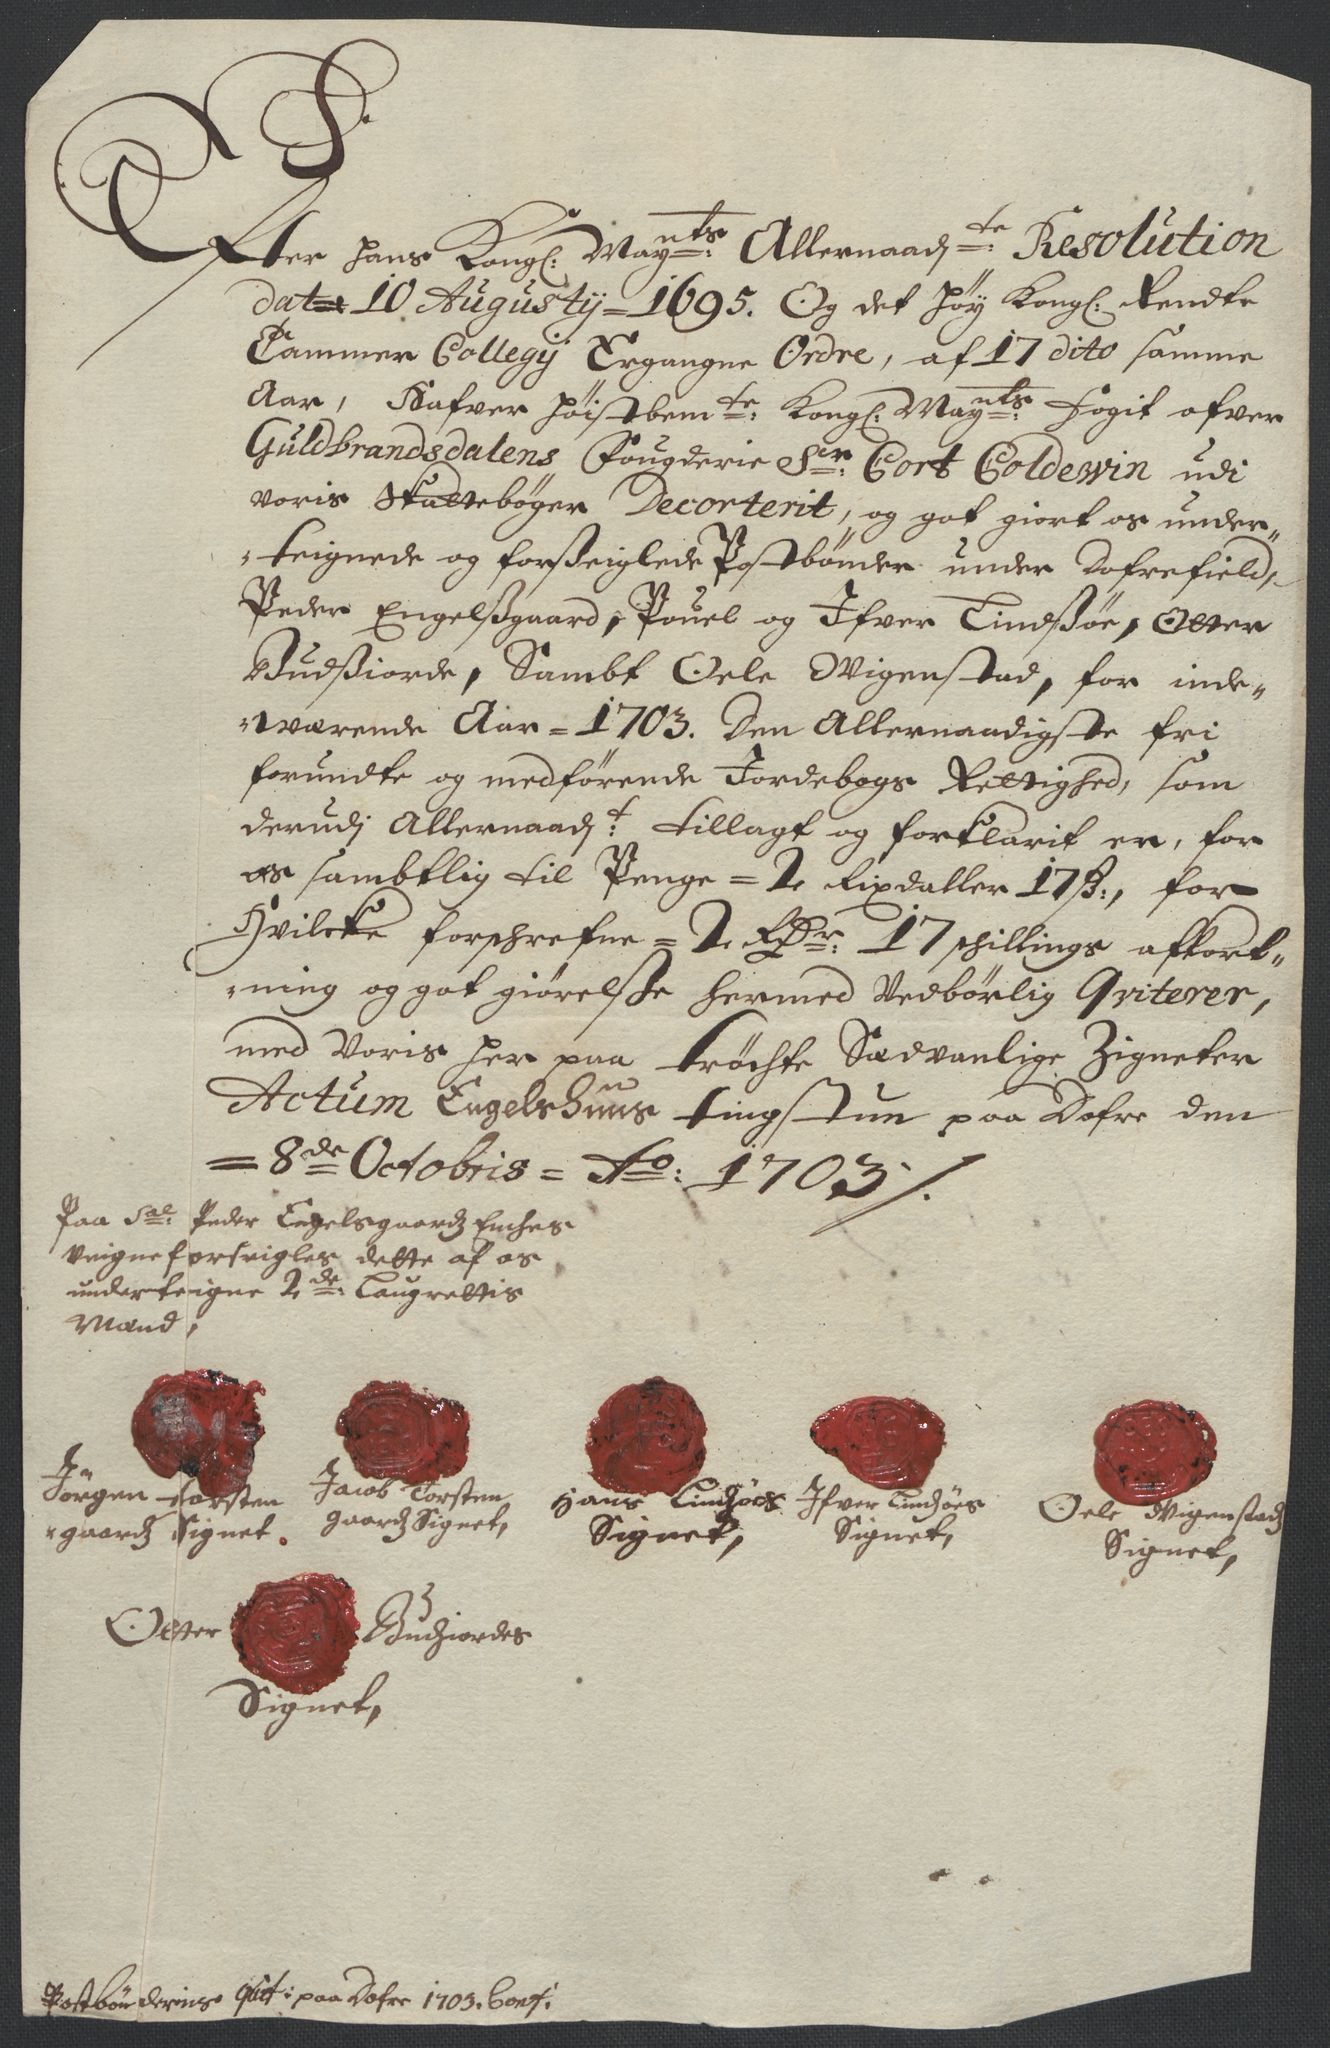 Efter hans Kongl: Mayts: Allernaadste: Resolution
dat: 10 Augustij = 1695. Og det høy Kongl: Rendte
Cammer Collegij Ergangne Ordre, af 17 dito samme
Aar, Hafver høistbemte: Kongl: Mayts: fogit ofver
Guldbrandsdalens Fougderie Sr: Cort Coldewin udi
voris Skattebøger Decorterit, og got giort os under-
-teignede og forsseiglede Postbønder under Dofrefield,
Peder Engelssgaard, Pouel og Ifver Lindssøe, Otter
Budssiorde, Sambt Oele Wigenstad, for inde-
-værende Aar = 1703. Den Allernaadigste fri
forundte og medførende Jordebogs Rettighed, som
derudj Allernaadt: tillagt og forklarit er, for
os sambtlig til Penge = 2 Rixdaller 17 ß:, for
Hvilcke forschrefne = 2 Rdr: 17 schillings afkort-
-ning og got giørelsse hermed Vedbørlig Qviterer,
med Voris her paa tröchte Sædvanlige Zigneter
Actum Engelshuus tingstue paa Dofre den
= 8de Octobris = Ao: 1703 /.
Paa Sal: Peder Engelsgaards Enches
veigne forseigles dette af os
underteigne 2de: Laugrettis
Mænd,
Jörgen Torsten
-gaards Signet
Jacob Torsten
gaards Signet,
Hans Lindsöes
Signet,
Ifver Lindsöes
Signet,
Oele Wigenstads
Signet,
Otter Budsiordes
Signet,
Postbøndernis qvit: paa Dofre 1703.